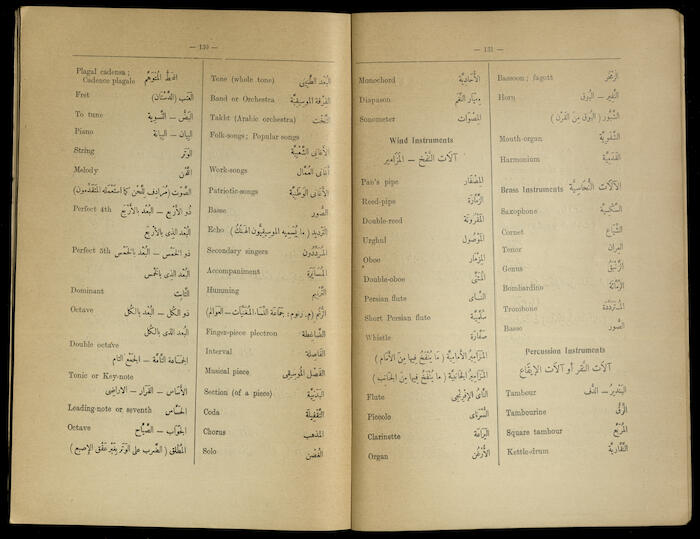 — 130 —
Plagal cadensa ;
Cadence plagale
الخط المتوهم
Fret العتب (الدستان)
To tune النبض – التسوية
Piano البيان – البيانة
String الوتر
Melody اللحن
الصوت (مرادف للحن كما استعمله المتقدمون)
Perfect 4th ذو الأربع – البعد بالأربع
البعد الذى بالأربع
Perfect 5th ذو الخمس – البعد بالخمس
البعد الذى بالخمس
Dominant الثابت
Octave ذو الكل – البعد بالكل
البعد الذى بالكل
Double octave
الجماعة التامة – الجمع التام
Tonic or Key-note
الأساس – القرار – الاراضى
Leading-note or seventh الحساس
Octave الجواب – الصياح
المطلق (الضرب على الوتر بغير عفق الإصبع)
Tone (whole tone) البعد الطنينى
Band or Orchestra الفرقة الموسيقية
Takht (Arabic orchestra) التخت
Folk-songs; Popular songs
الأغانى الشعبية
Work-songs أغانى العمال
Patriotic-songs الأغانى الوطنية
Basse الصور
Echo الترديد (ما يسميه الموسيقيون الهنك)
Secondary singers المرددون
Accompaniment المسايرة
Humming الترنيم
الرنم (م. رنوم: جماعة النساء المغنيات – العوالم)
Finger-piece plectron الضاغطة
Interval الفاصلة
Musical piece الفصل الموسيقى
Section (of a piece) البدنية
Coda التقفيلة
Chorus المذهب
Solo الغصن
— 131 —
Monochord الأحادية
Diapason معيار النغم
Sonometer المصوات
Wind Instruments
آلات النفخ – المزامير
Pan's pipe المصفار
Reed-pipe الزمارة
Double-reed المقرونة
Urghul الموصول
Oboe المزمار
Double-oboe المثنى
Persian flute الناى
Short Persian flute
Whistle صفارة
المزامير الأمامية (ما ينفخ فيها من الأمام)
المزامير الجانبية (ما ينفخ فيها من الجانب)
Flute الناى الإفرنجى
Piccolo السرناى
Clarinette اليراعة
Organ الأرغن
Bassoon ; fagott الزمخر
Horn النفير – البوق
الشبور (البوق من القرن)
Mouth-organ الشفوية
Harmonium القدمية
Brass Instruments الآلات النحاسية
Saxophone السكسية
Cornet الشياع
Tenor العران
Genus الزنبق
Bombardino
Trombone المترددة
Basse الصور
Percussion Instruments
آلات النقر أو آلات الإيقاع
Tambour البندير – الدف
Tambourine الرق
Square tambour المربع
Kettle-drum النقارية